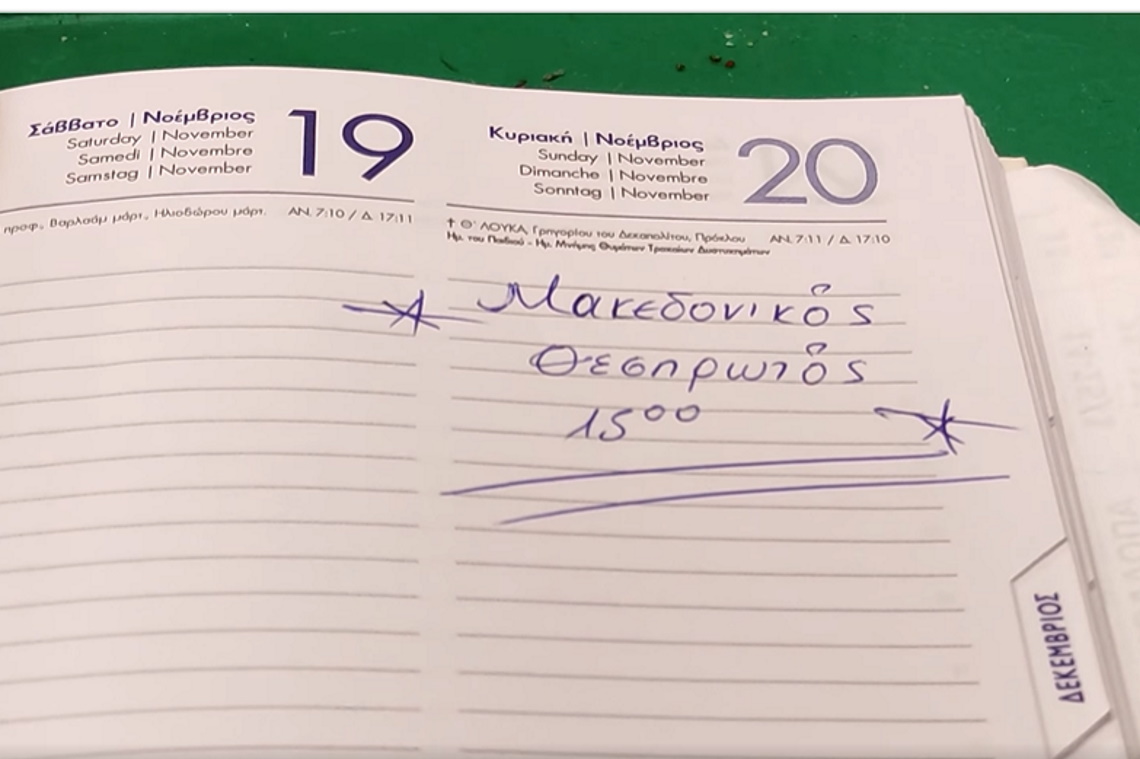 Σάββατο | Νοέμβριος
Saturday | November
Samedi | Novembre
Samstag | November
19
προφ., Βαρλαάμ μάρτ., Ηλιοδώρου μάρτ.
ΑΝ. 7:10 / Δ. 17:11
Κυριακή | Νοέμβριος
Sunday | November
Dimanche | Novembre
Sonntag | November
20
† Θ΄ ΛΟΥΚΑ, Γρηγορίου του Δεκαπολίτου, Πρόκλου
ΑΝ. 7:11 / Δ. 17:10
Ημ. του Παιδιού - Ημ. Μνήμης Θυμάτων Τροχαίων Δυστυχημάτων
Μακεδονικός
Θεσπρωτός
15⁰⁰
ΔΕΚΕΜΒΡΙΟΣ